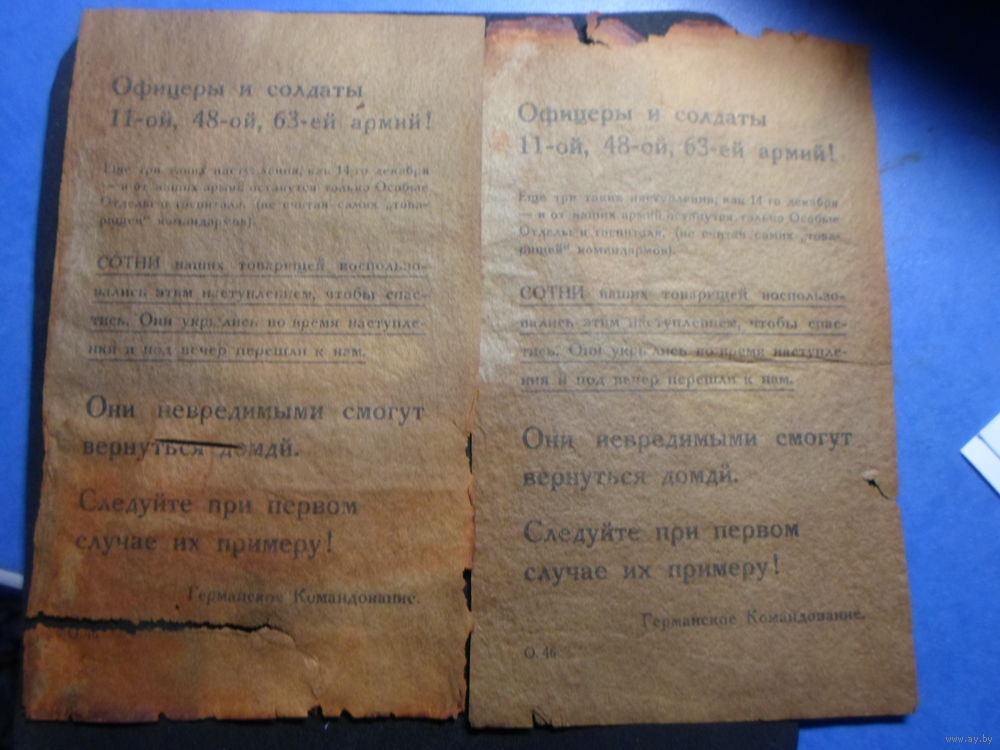 Офицеры и солдаты
11-ой, 48-ой, 63-ей армий!
Еще три таких наступления, как 14 го декабря
— и от наших армий останутся только Особые
Отделы и госпитали, (не считая самих „това-
рищей“ командармов).
СОТНИ наших товарищей воспользо-
вались этим наступлением, чтобы спас-
тись. Они укрылись во время наступле-
ния и под вечер перешли к нам.
Они невредимыми смогут
вернуться домдй.
Следуйте при первом
случае их примеру!
Германское Командование.
О. 46
Офицеры и солдаты
11-ой, 48-ой, 63-ей армий!
Еще три таких наступления, как 14 го декабря
— и от наших армий останутся только Особые
Отделы и госпитали, (не считая самих „това-
рищей“ командармов).
СОТНИ наших товарищей воспользо-
вались этим наступлением, чтобы спас-
тись. Они укрылись во время наступле-
ния и под вечер перешли к нам.
Они невредимыми смогут
вернуться домдй.
Следуйте при первом
случае их примеру!
Германское Командование.
О. 46
www.ay.by